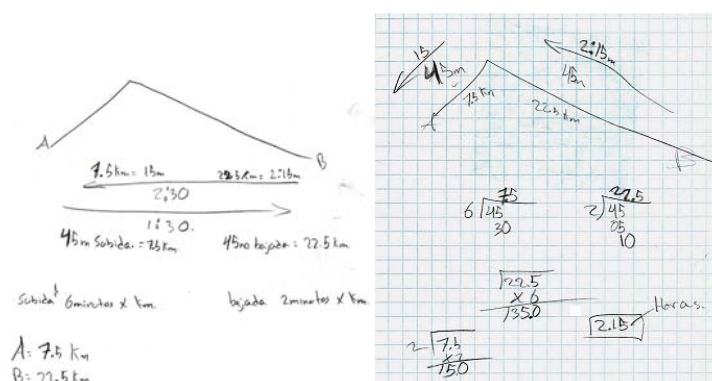 A
B
7.5 km = 15m 22.5 km = 2:15m
2:30
1:30.
45m subida = 7.5 km. 45m bajada = 22.5 km.
subida 6 minutos x km. bajada 2 minutos x km.
A = 7.5 Km
B = 22.5 Km
15
45m
2:15m
45m
7.5 Km
22.5 km
A
B
7.5
6 45
30
22.5
2 45
05
10
22.5
x 6
135.0
2.15 Horas.
2 7.5
x 2
15.0